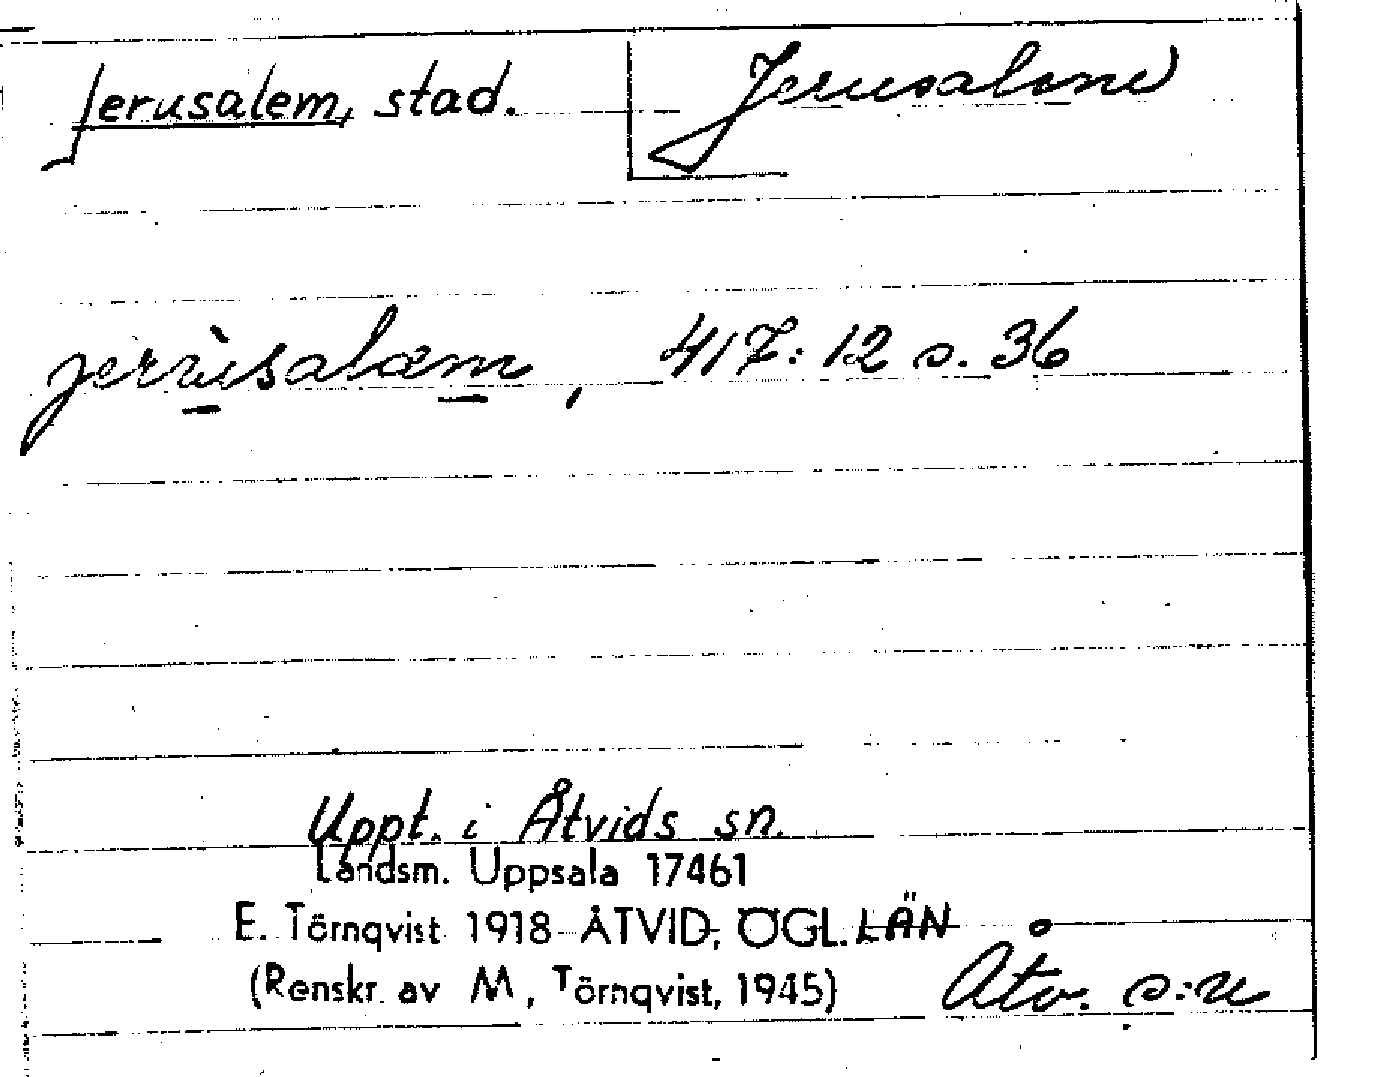 Jerusalem, stad.
Jerusalem
jerrùsalæm, 417:12 s. 36
Uppt. i Åtvids sn.
Landsm. Uppsala 17461
E. Törnqvist 1918 ÅTVID, ÖGL. LÄN
(Renskr. av M, Törnqvist, 1945)
Åtv. s:n